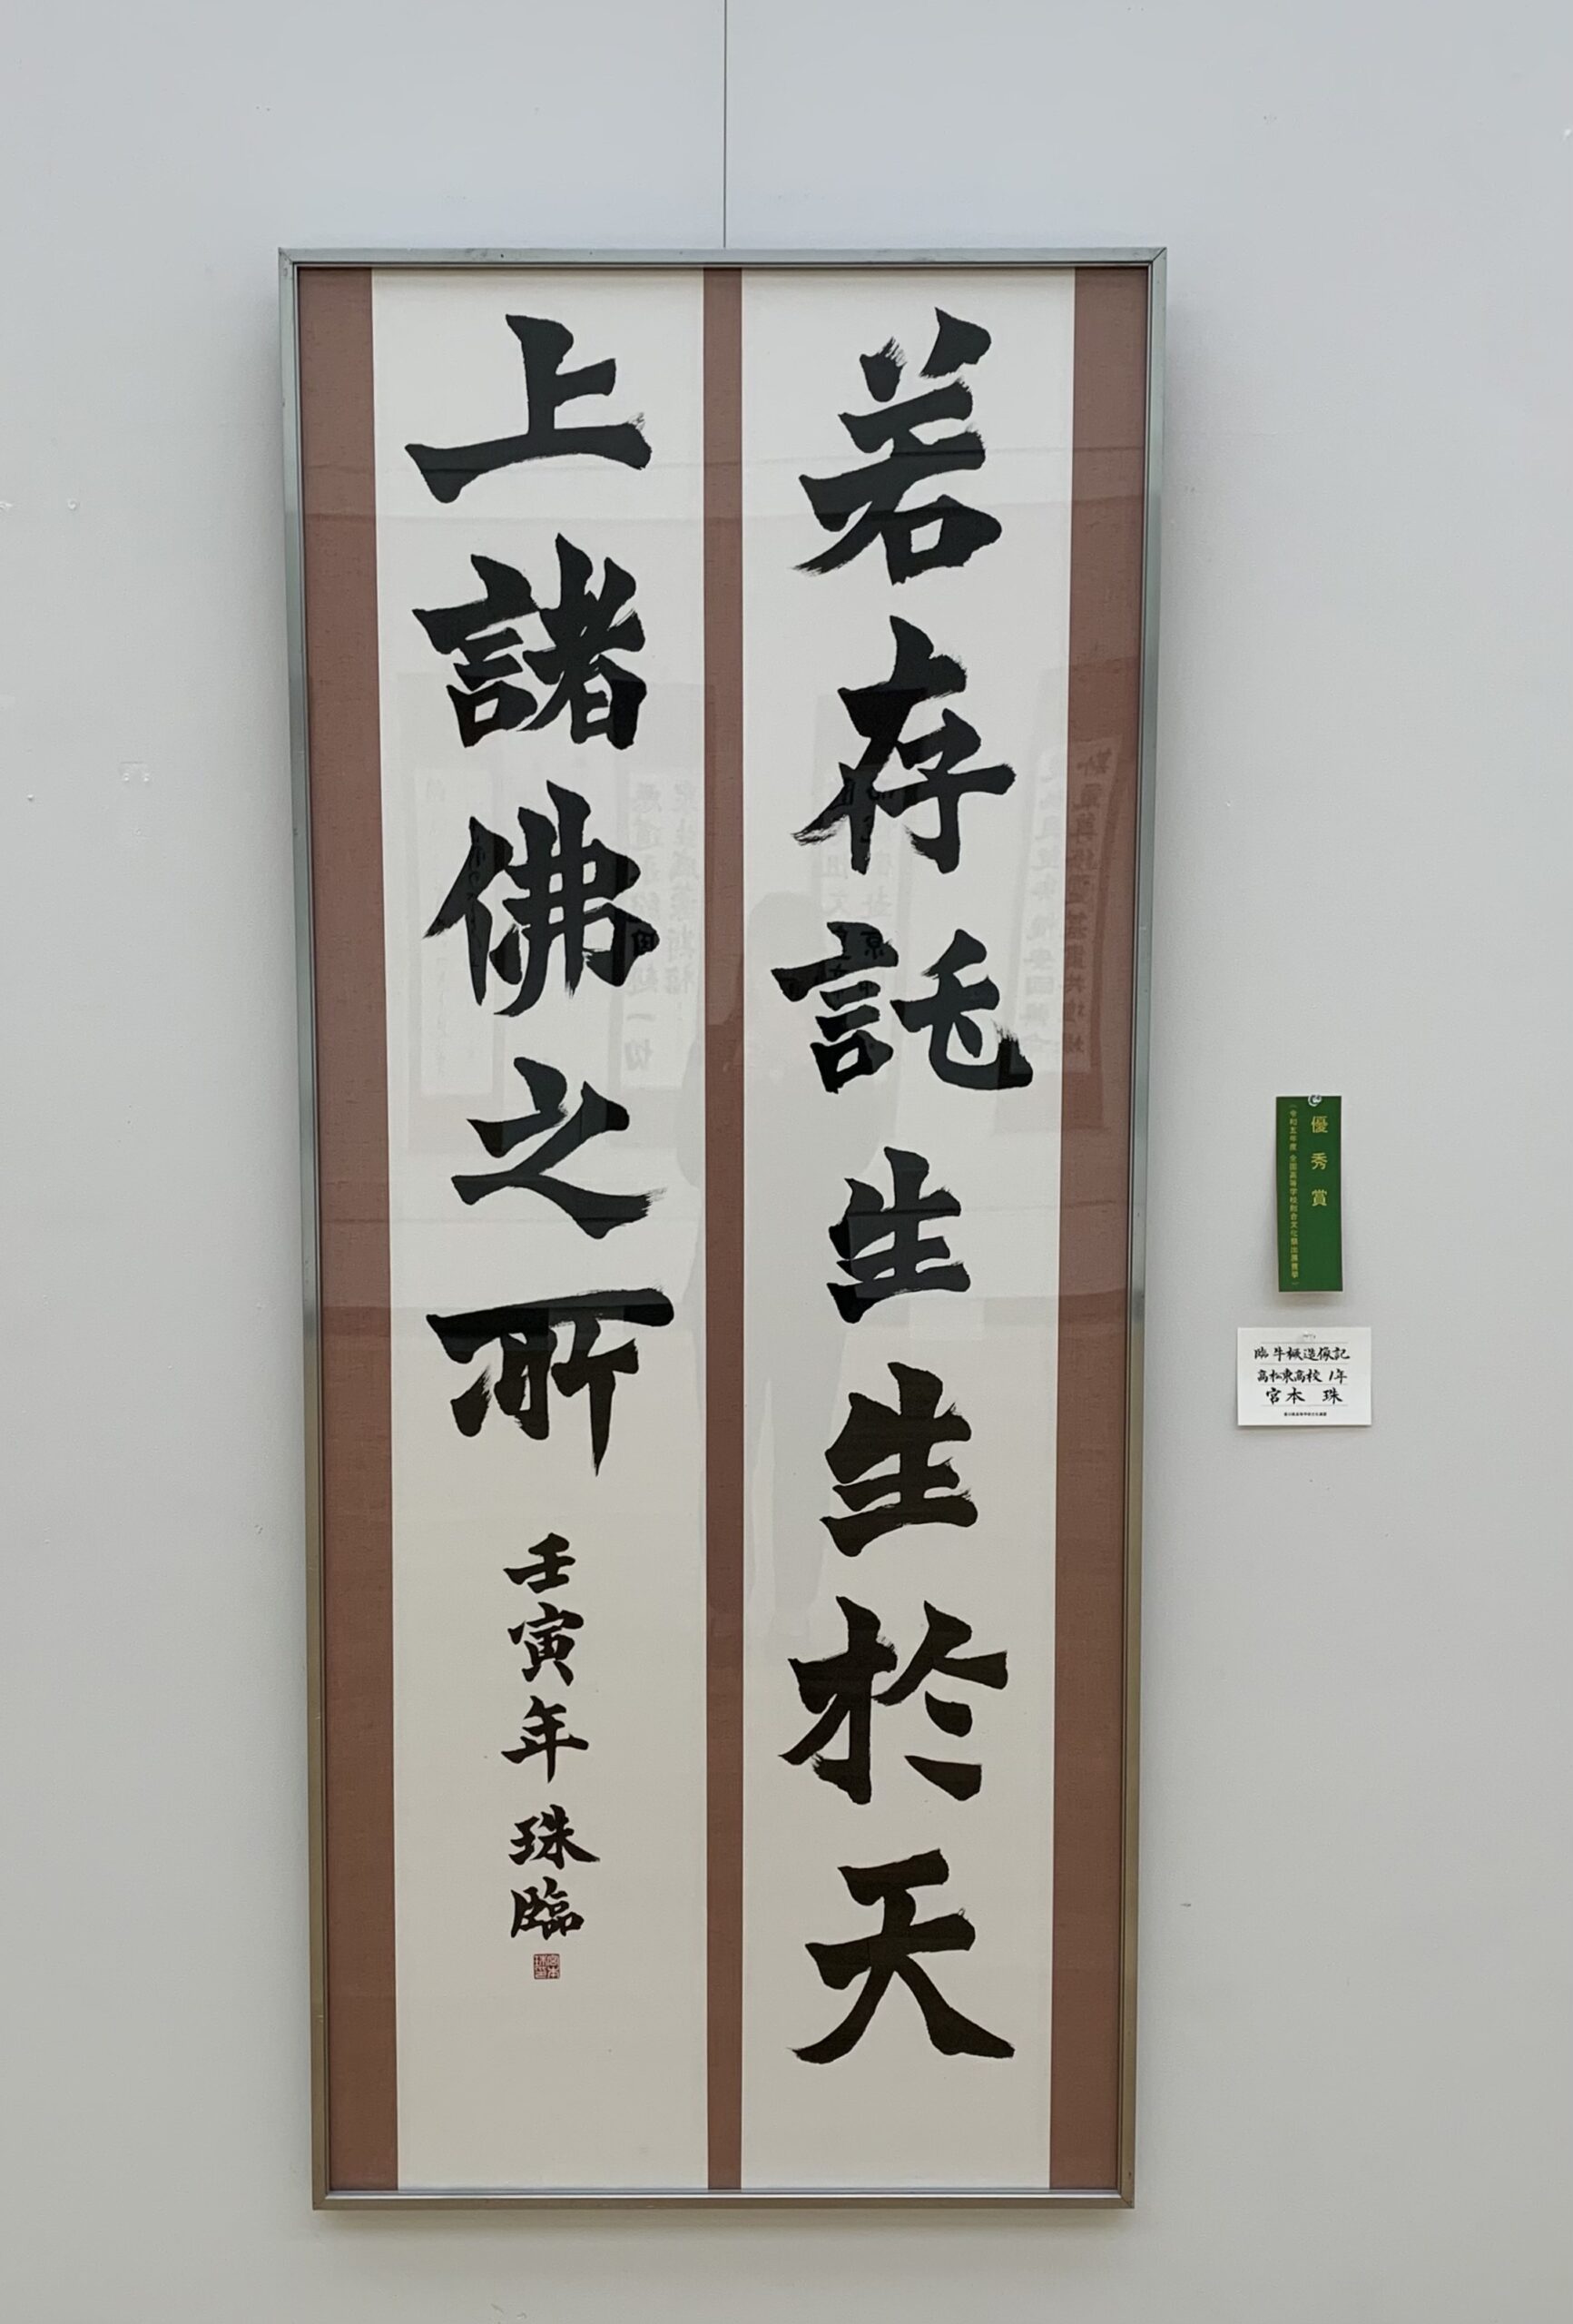 若存託生生於天
上諸佛之所
壬寅年 珠臨
優秀賞
令和五年度 全国高等学校総合文化祭出展推挙
臨 牛橛造像記
高松東高校 1年
宮本 珠
香川県高等学校文化連盟